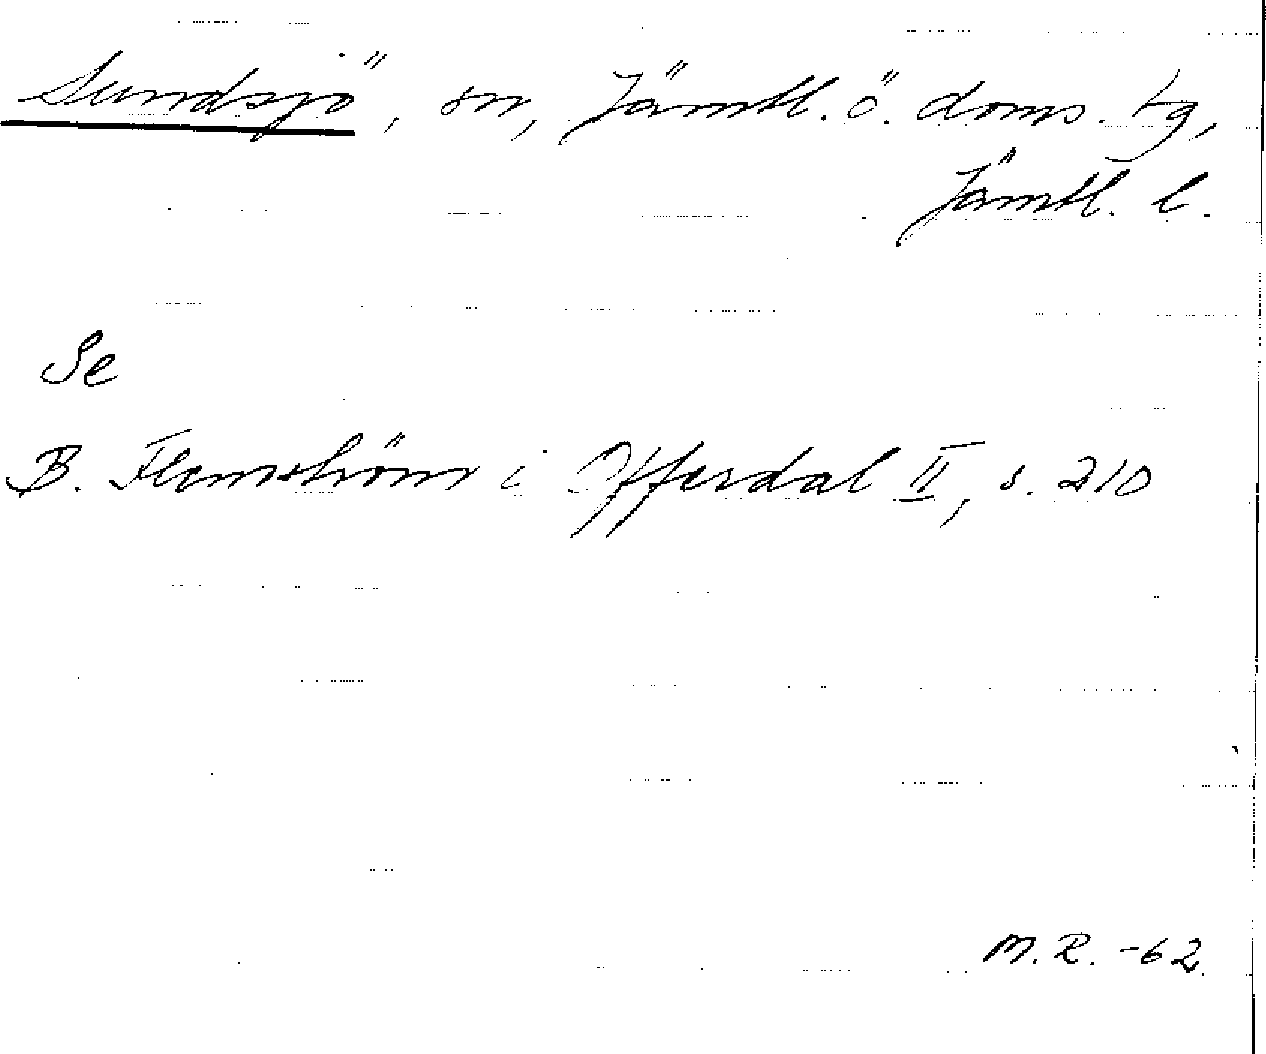 Sundsjö, sn, Jämtl. ö. doms. tg,
Jämtl. l.
Se
B. Flemström i Offerdal II, s. 210
M.R. -62